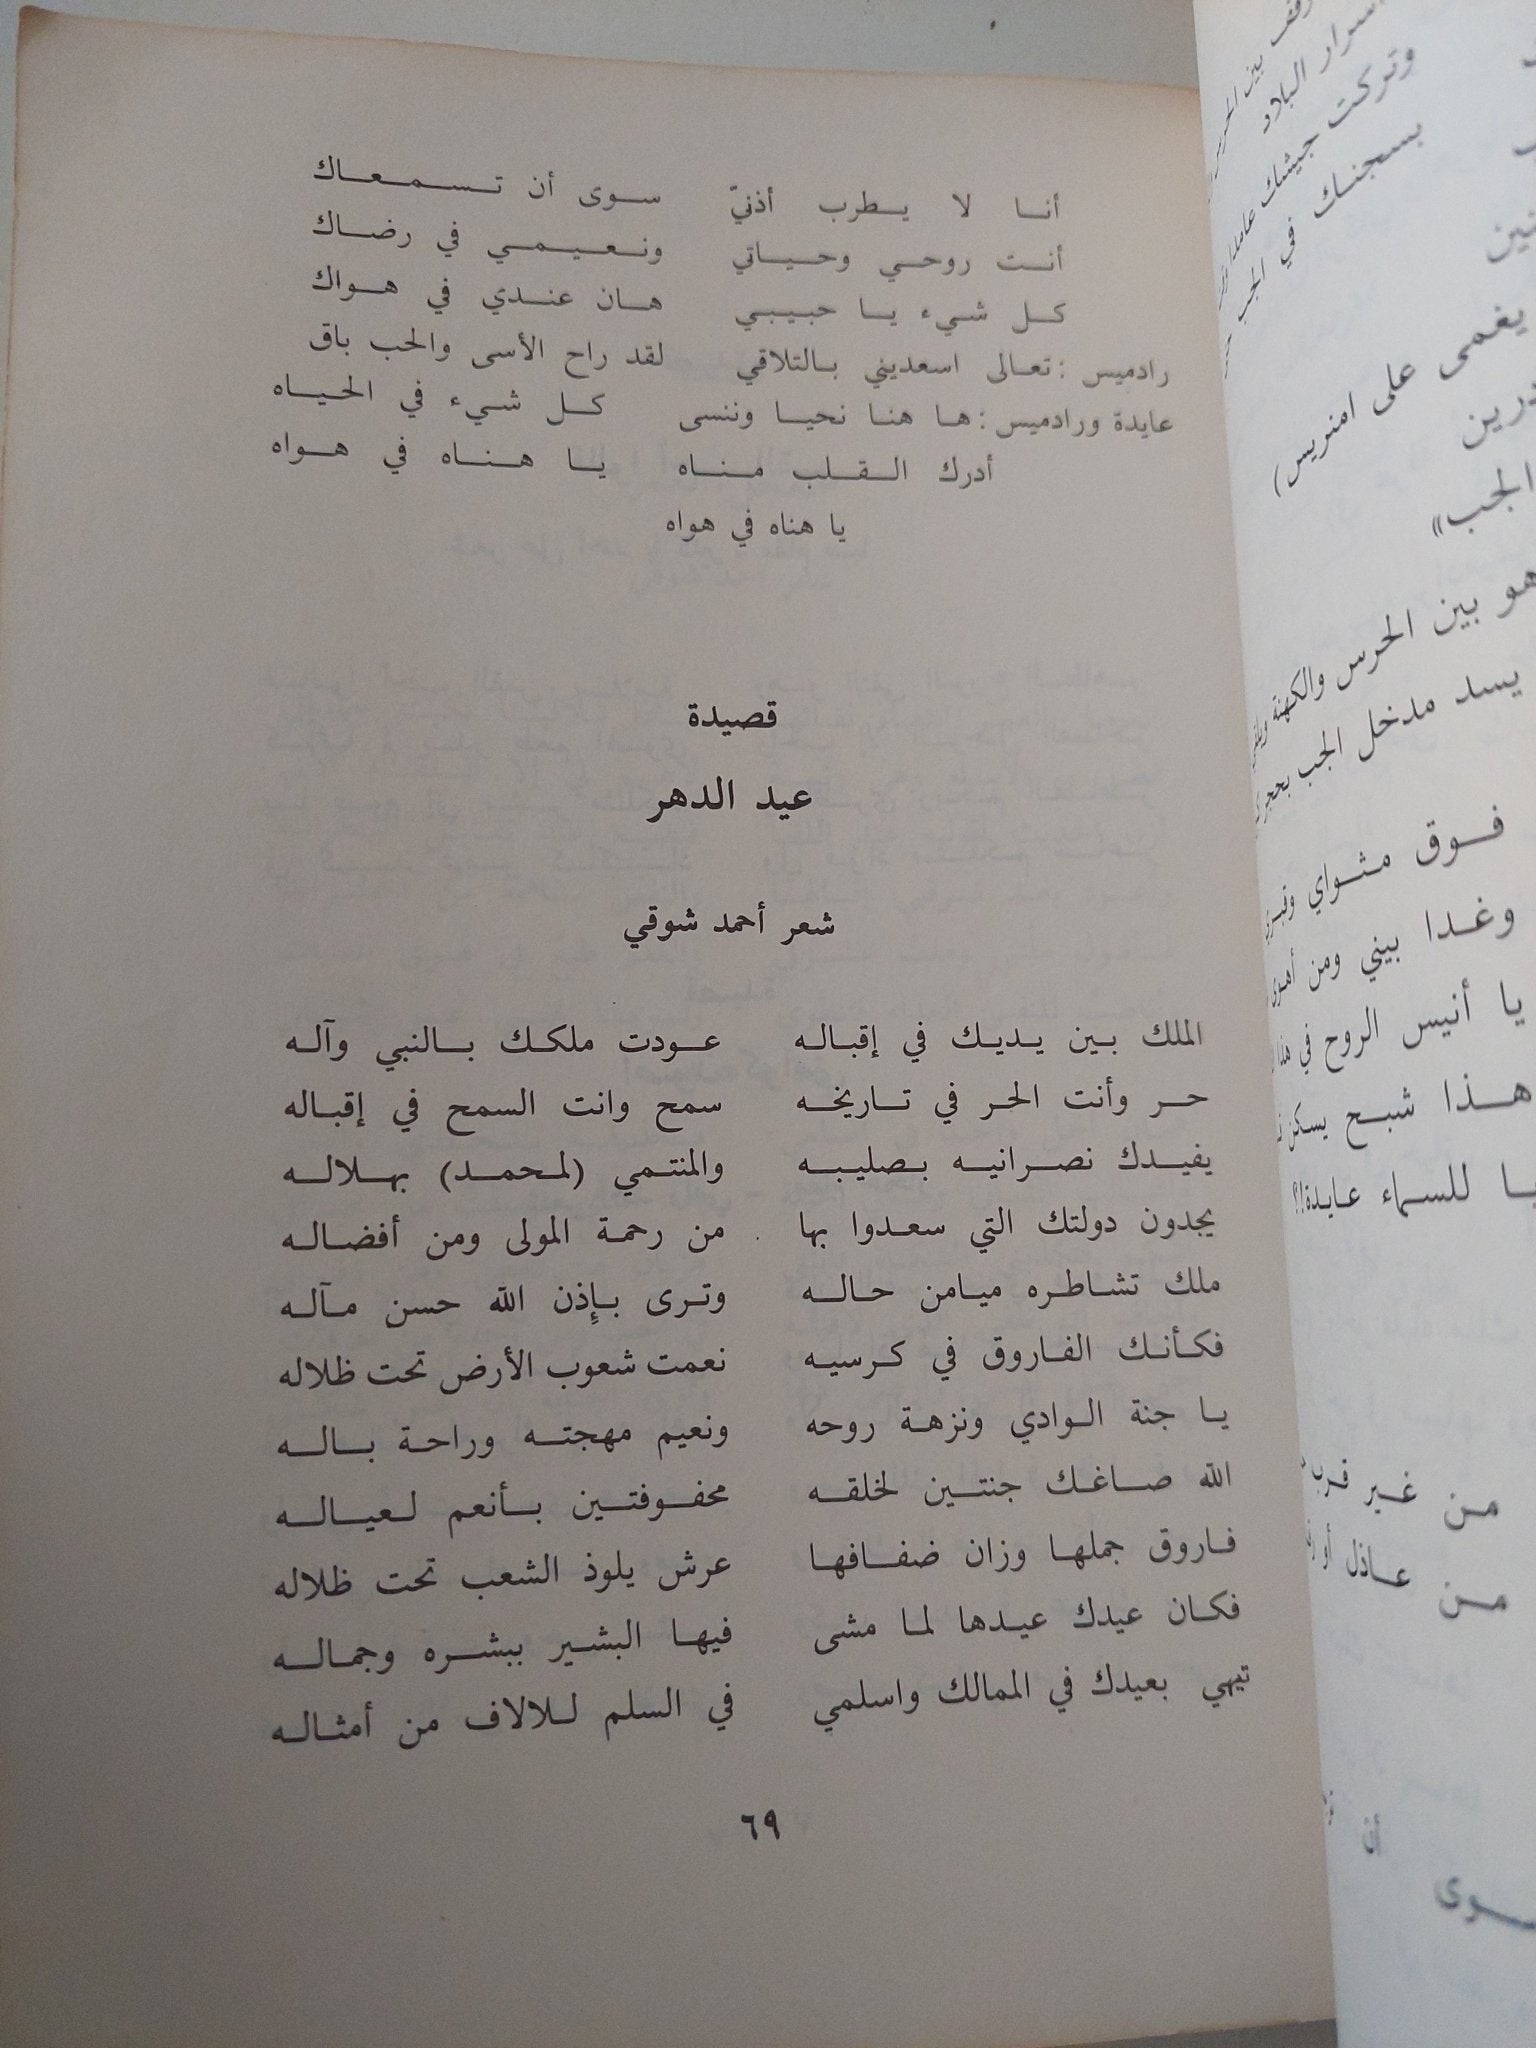 أنا لا يطرب أذنيّ سوى أن تسمعاك
أنت روحي وحياتي ونعيمي في رضاك
كل شيء يا حبيبي هان عندي في هواك
رادميس : تعالى اسعديني بالتلاقي لقد راح الأسى والحب باق
عايدة ورادميس : ها هنا نحيا وننسى كل شيء في الحياه
أدرك القلب مناه يا هناه في هواه
يا هناه في هواه
قصيدة
عيد الدهر
شعر أحمد شوقي
الملك بين يديك في إقباله عودت ملكك بالنبي وآله
حر وأنت الحر في تاريخه سمح وانت السمح في إقباله
يفيدك نصرانيه بصليبه والمنتمي (لمحمد) بهلاله
يجدون دولتك التي سعدوا بها من رحمة المولى ومن أفضاله
ملك تشاطره ميامن حاله وترى بإذن الله حسن مآله
فكأنك الفاروق في كرسيه نعمت شعوب الأرض تحت ظلاله
يا جنة الوادي ونزهة روحه ونعيم مهجته وراحة باله
الله صاغك جنتين لخلقه محفوفتين بأنعم لعياله
فاروق جملها وزان ضفافها عرش يلوذ الشعب تحت ظلاله
فكان عيدك عيدها لما مشى فيها البشير ببشره وجماله
تيهي بعيدك في الممالك واسلمي في السلم للالاف من أمثاله
٦٩
أسرار البلاد
وتركت جيشك عامدا
بسجنك في الجب
يغمى على امنريس)
الجب»
هو بين الحرس والكهنة
يسد مدخل الجب بحجر
فوق مثواي
وغدا بيني ومن أهوى
يا أنيس الروح في هذا
هذا شبح يسكن
يا للسماء عايدة!؟
من غير قرب
من عاذل أو
أن